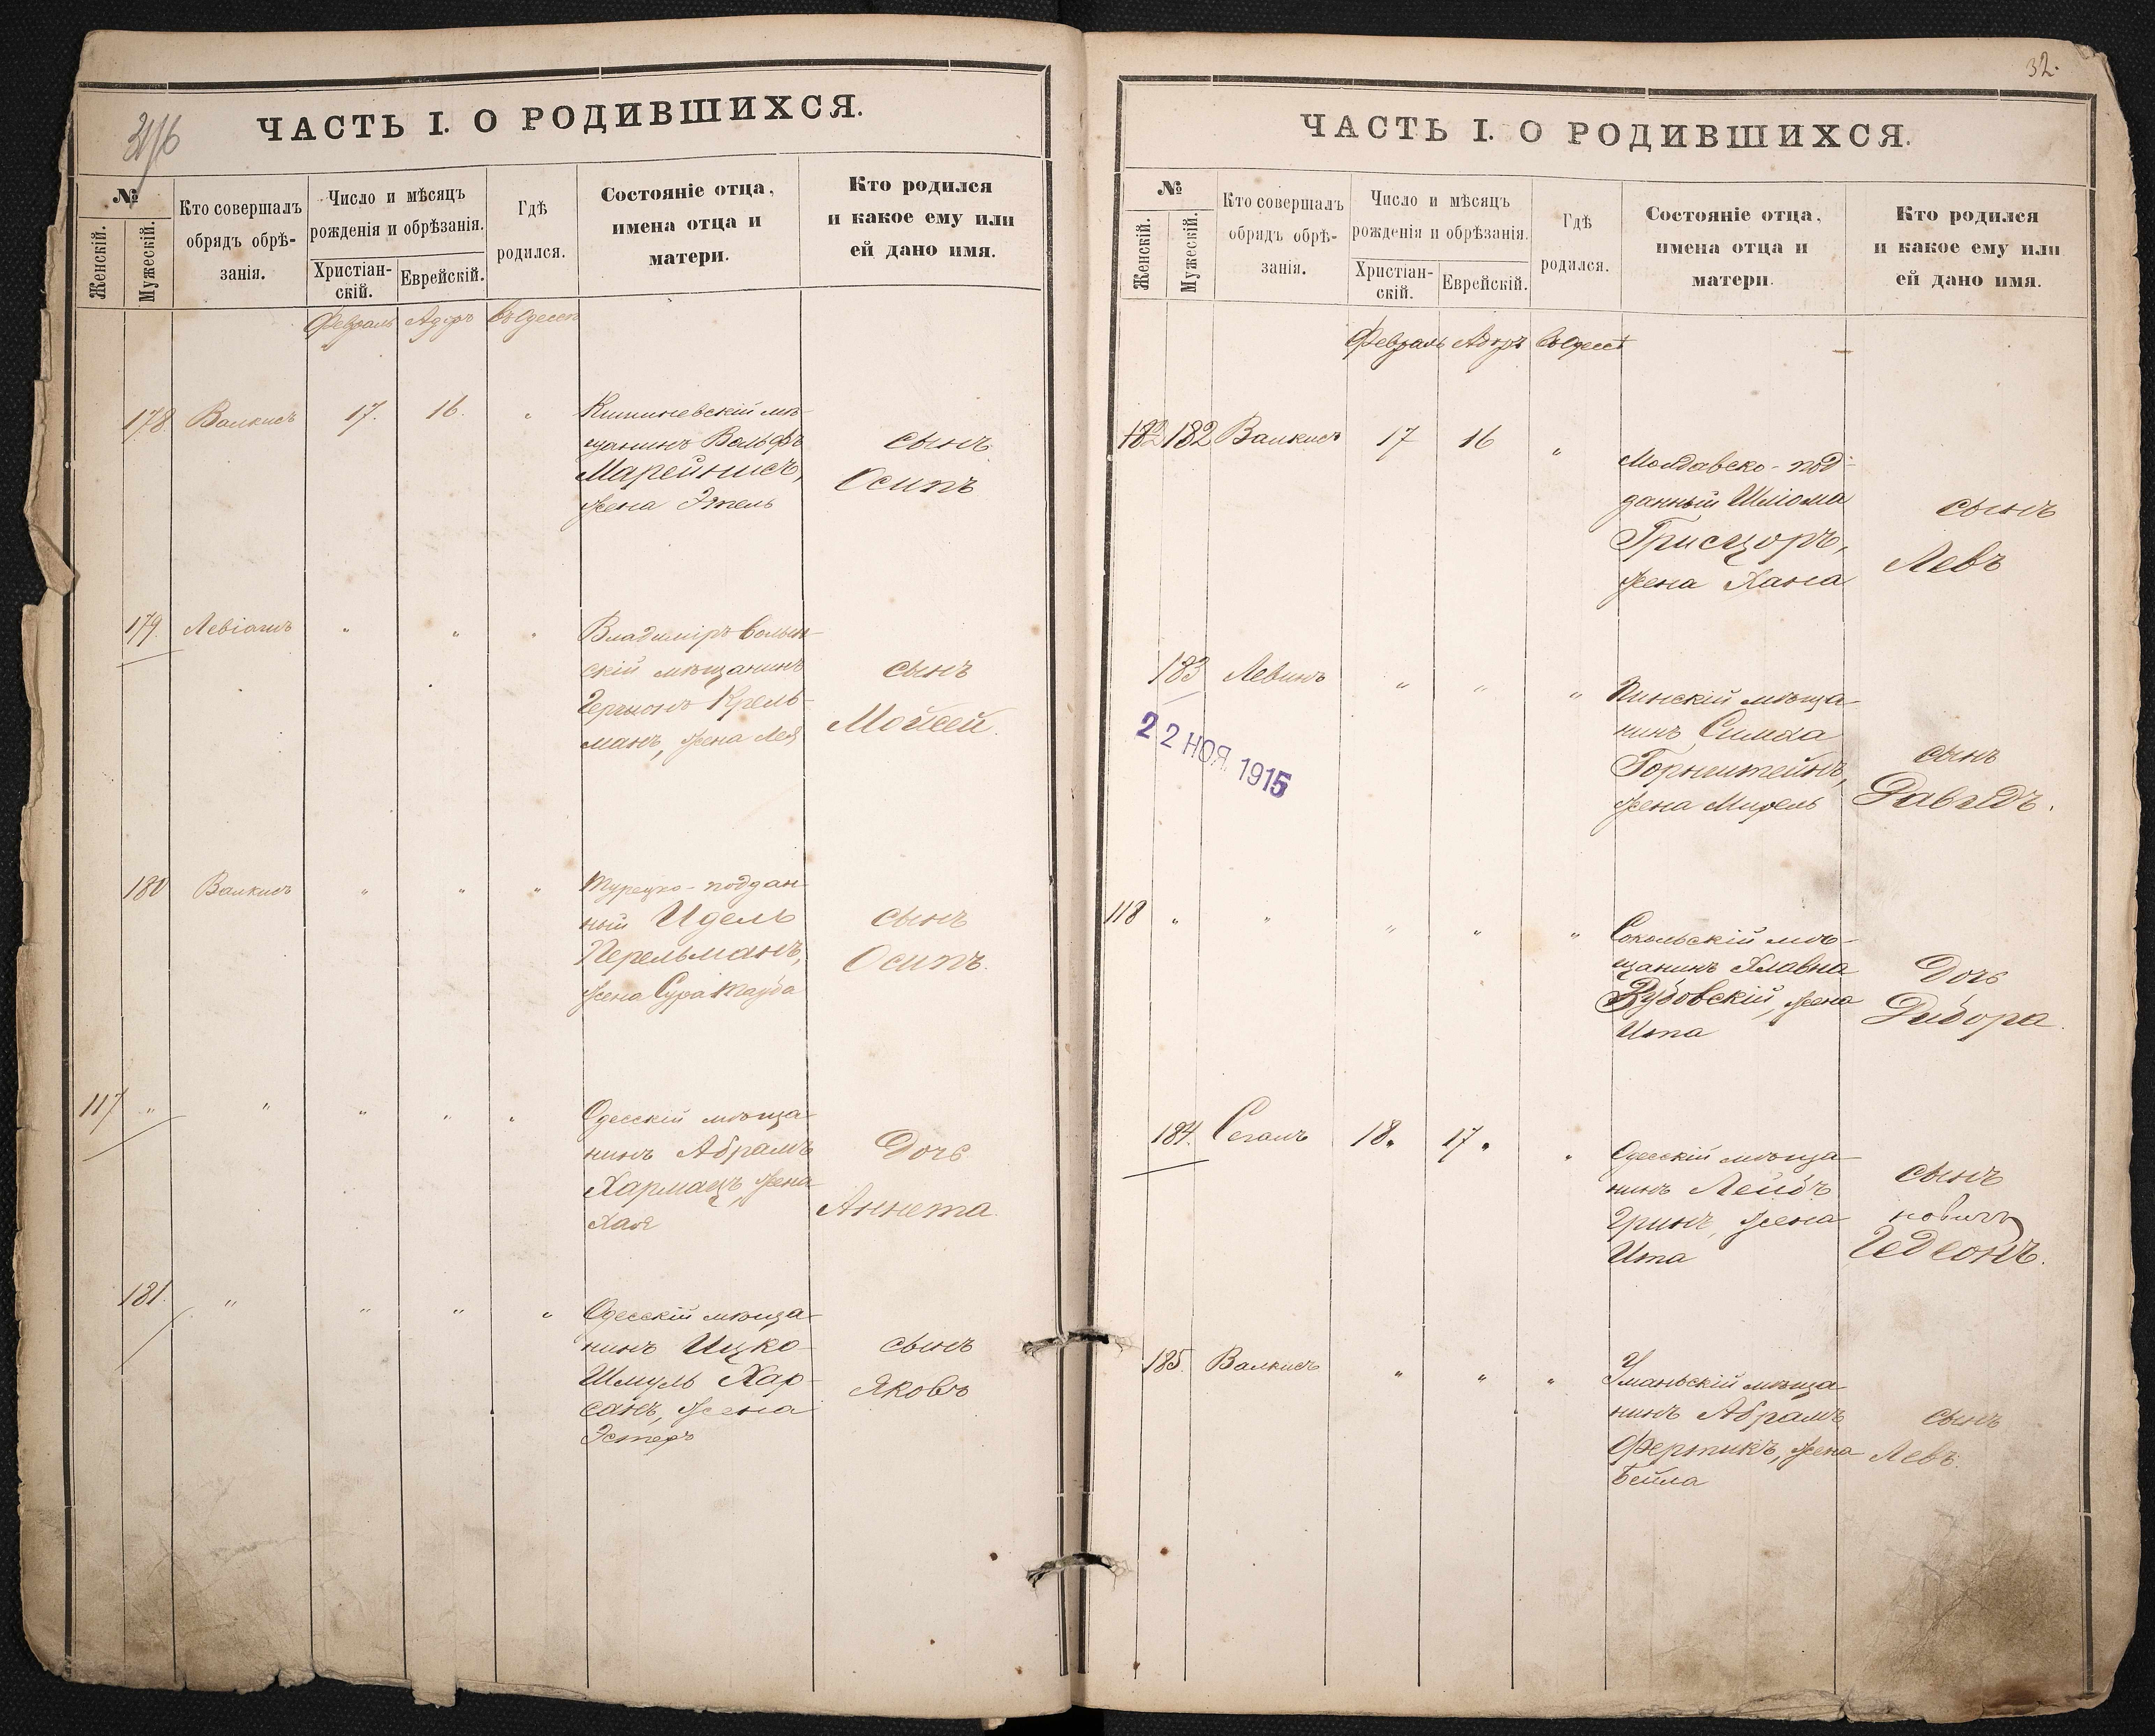 316
ЧАСТЬ I. О РОДИВШИХСЯ.
№
Женскій.
Мужескій.
Кто совершалъ
обрядъ обрѣ-
занія.
Число и мѣсяцъ
рожденія и обрѣзанія.
Христіан-
скій.
Еврейскій.
Гдѣ
родился.
Состояніе отца,
имена отца и
матери.
Кто родился
и какое ему или
ей дано имя.
Февраль Адаръ въ Одессѣ
178. Валкисъ 17. 16. "
Кишиневскій мѣ-
щанинъ Вольфъ
Марейнисъ,
жена Этель
сынъ
Осипъ
179. " " "
Владиміръ Волын-
скій мѣщанинъ
Крель-
манъ, жена Лея
сынъ
Мойсей.
180 Валкисъ " " "
Турецко-поддан-
ный Идель
Перельманъ,
жена Сура
сынъ
Осипъ.
117 " " " " "
Одесскій мѣща-
нинъ Абрамъ
Хармацъ, жена
Хая
Дочь
Аннета.
181. " " " "
Одесскій мѣща-
нинъ Ицко-
Шмуль Хар-
санъ, жена
Эстеръ
сынъ
Яковъ
32.
ЧАСТЬ I. О РОДИВШИХСЯ.
№
Женскій.
Мужескій.
Кто совершалъ
обрядъ обрѣ-
занія.
Число и мѣсяцъ
рожденія и обрѣзанія.
Христіан-
скій.
Еврейскій.
Гдѣ
родился.
Состояніе отца,
имена отца и
матери.
Кто родился
и какое ему или
ей дано имя.
Февраль Адаръ въ Одессѣ
182 182 Валкисъ 17 16 "
Молдавско-под-
данный Шліома
жена Хана
сынъ
Левъ
183 Левинъ " " "
22 НОЯ. 1915
Пинскій мѣща-
нинъ Симха
Горнштейнъ,
жена Мирель
сынъ
Давидъ.
118 " " " " "
Сокольскій мѣ-
щанинъ Хлавна
Зубовскій, жена
Ита
Дочь
Дибора.
184. Сегалъ 18. 17. "
Одесскій мѣща-
нинъ Лейбъ
Гринъ, жена
Ита
сынъ
Гедеонъ.
185. Валкисъ " " "
Уманьскій мѣща-
нинъ Абрамъ
Фертикъ, жена
Бейла
сынъ
Левъ.